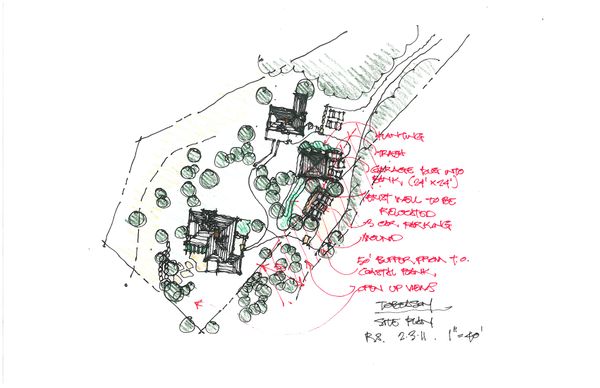 PLANTING
TRASH
GARAGE DUG INTO
BANK, (24' X 24')
EXIST WELL TO BE
RELOCATED
3 CAR PARKING
MOUND
50' BUFFER FROM T.O.
COASTAL BANK,
OPEN UP VIEWS
SITE PLAN
R.S. 2.3.11. 1"=40'